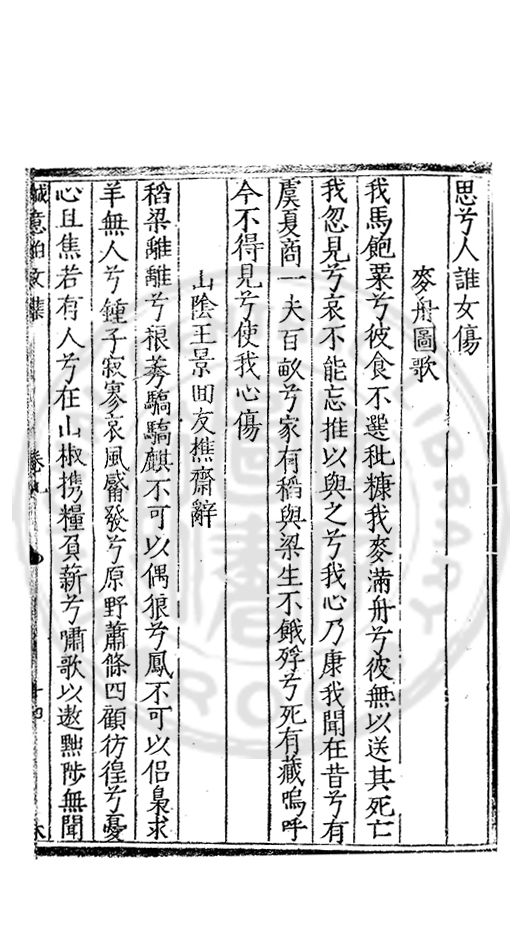 思兮人誰女傷
麥舟圖歌
我馬飽粟兮彼食不選秕糠我麥滿舟兮彼無以送其死亡
我忽見兮哀不能忘推以與之兮我心乃康我聞在昔兮有
虞夏商一夫百畝兮家有稻與梁生不餓殍兮死有藏嗚呼
今不得見兮使我心傷
山陰王景回友樵齋辭
稻梁離離兮稂莠驕驕麒不可以偶狼兮鳳不可以侶梟求
羊無人兮鍾子寂寥哀風觱發兮原野蕭條四顧彷徨兮憂
心且焦若有人兮在山椒携糧負薪兮嘯歌以遨黜陟無聞
誠意伯文集 卷九 十四